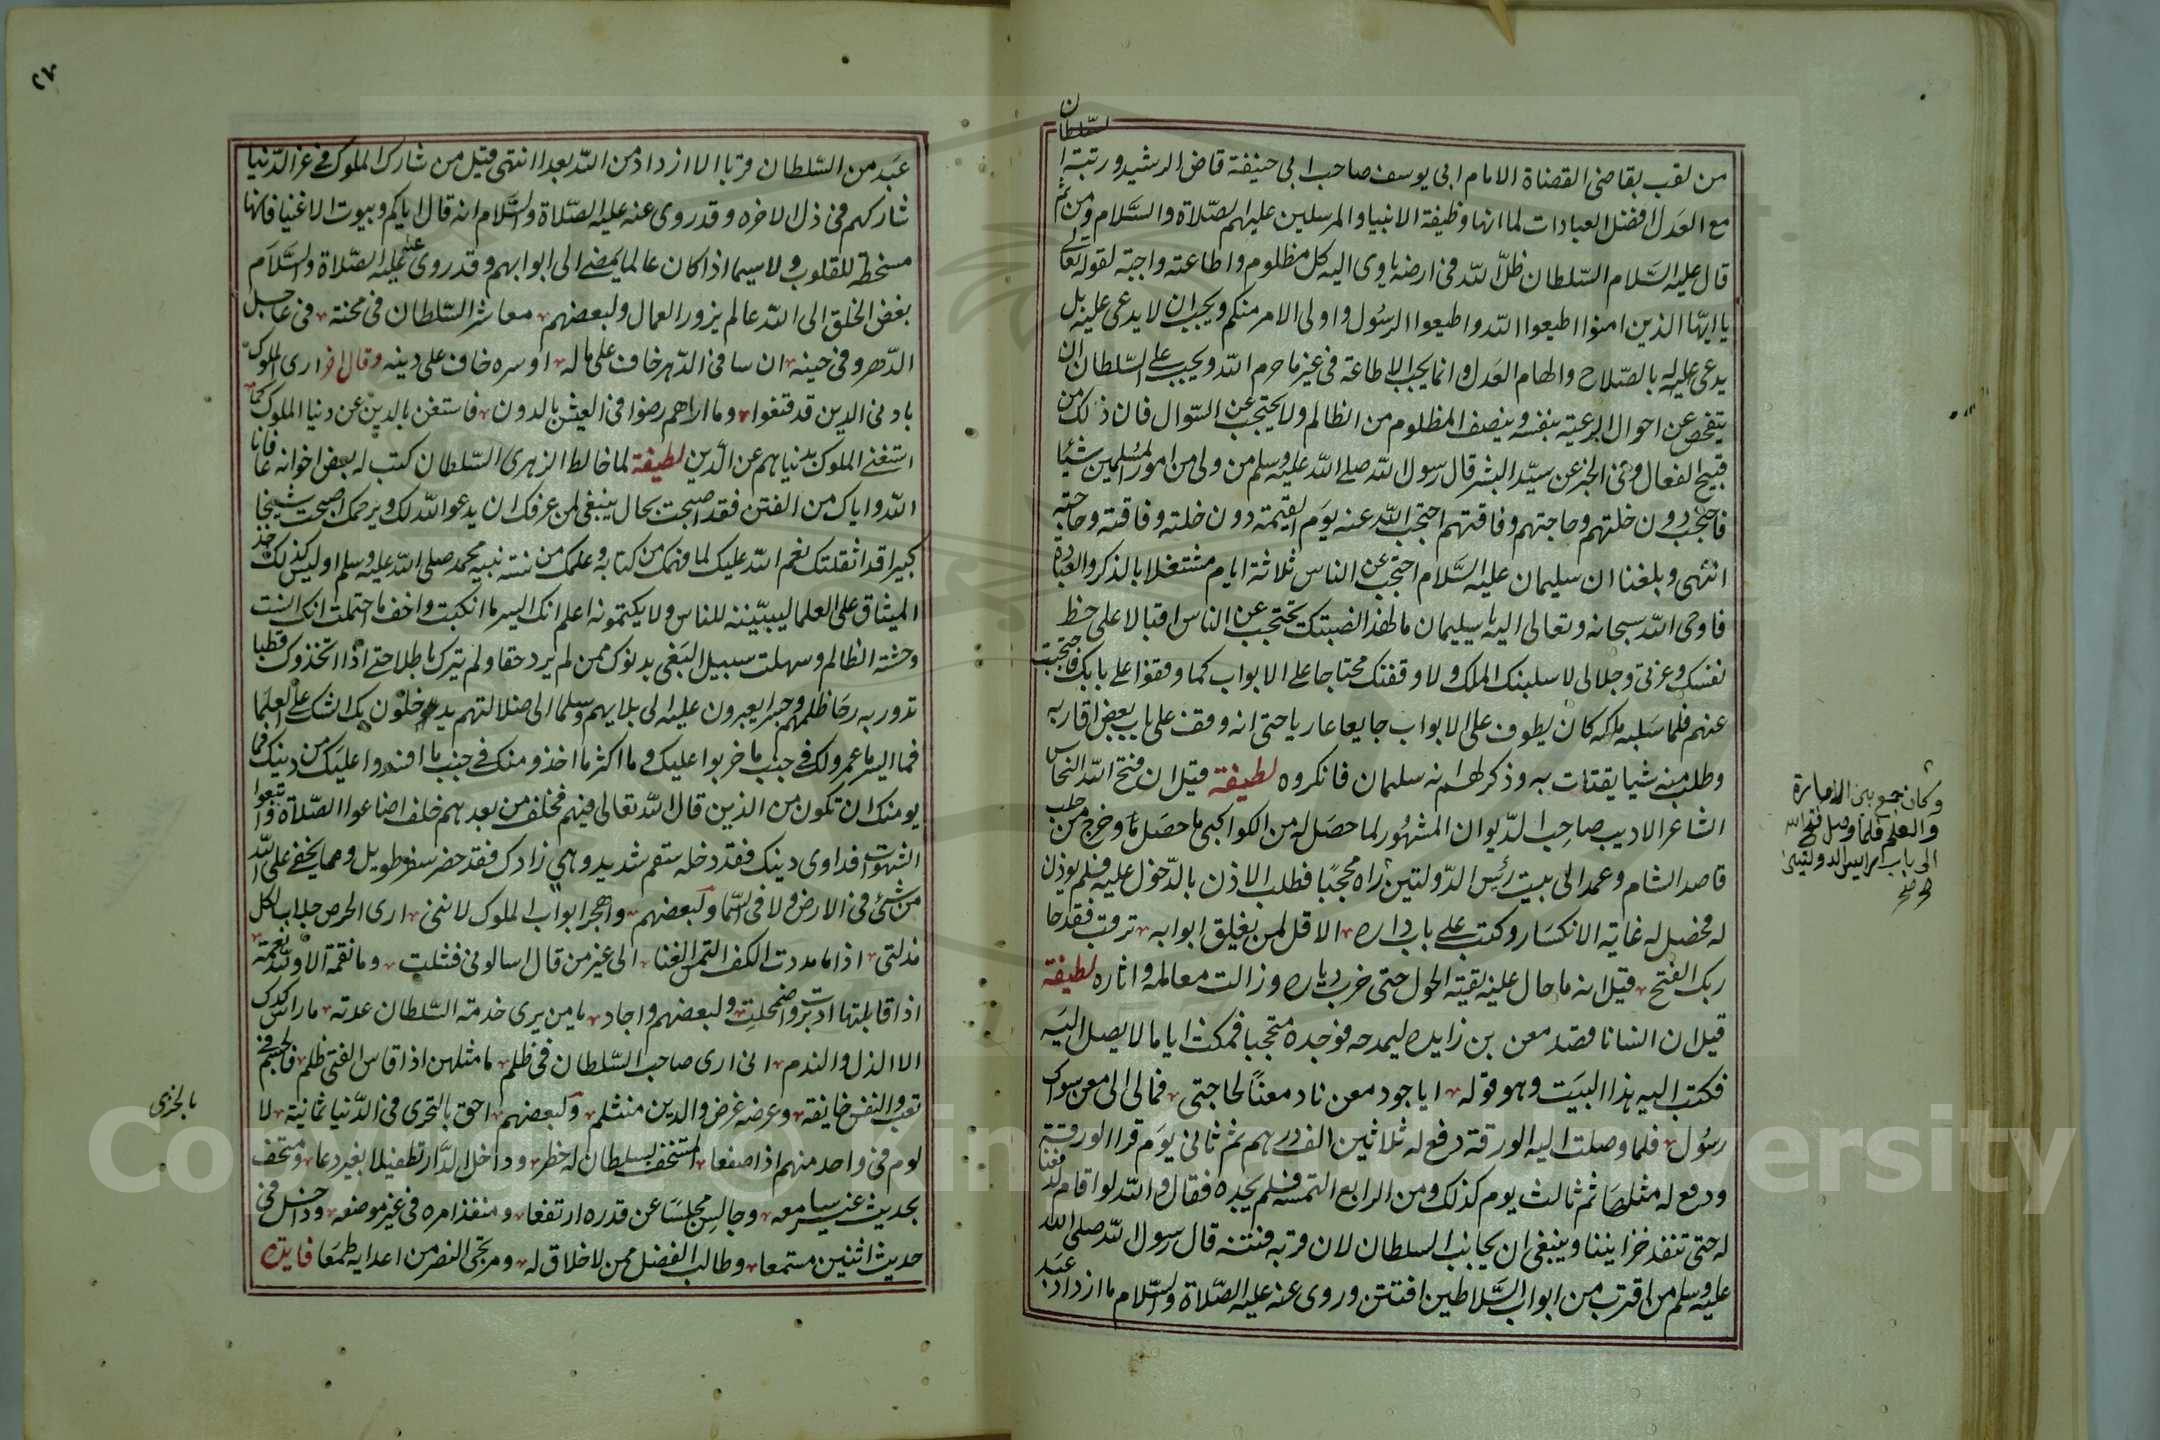 من لقب بقاضى القضاة الامام ابى يوسف صاحب ابى حنيفة قاض الرشيد ورتبة السلطان
مع العدل افضل العبادات لما انها وظيفة الانبيا والمرسلين عليهم الصلاة والسلام ومن ثم
قال عليه السلام السلطان ظل الله فى ارضه ياوى اليه كل مظلوم واطاعته واجبة لقوله تعالى
يا ايها الذين امنوا اطيعوا الله واطيعوا الرسول واولى الامر منكم ويجب ان لا يدعى عليه بل
يدعى له بالصلاح والهام العدل وانما يجب الاطاعة فى غير ما حرم الله ويجب على السلطان ان
يتفحص عن احوال الرعية بنفسه وينصف المظلوم من الظالم ولا يحتجب عن السوال فان ذلك من
قبيح الفعال وفى الخبر عن سيد البشر قال رسول الله صلى الله عليه وسلم من ولى من امور المسلمين شيئا
فاحتجب دون خلتهم وحاجتهم وفاقتهم احتجب الله عنه يوم القيمة دون خلته وفاقته وحاجته
انتهى وبلغنا ان سليمان عليه السلام احتجب عن الناس ثلاثة ايام مشتغلا بالذكر والعبادة
فاوحى الله سبحانه وتعالى اليه يا سليمان ما لهذا نصبتك تحتجب عن الناس اقبالا على حظ
نفسك وعزتى وجلالى لاسلبنك الملك ولاوقفنك محتاجا على الابواب كما وقفوا على بابك فاحتجبت
عنهم فلما سلبه ملكه كان يطوف على الابواب جايعا عاريا حتى انه وقف على باب بعض اقاربه
وطلب منه شيا يقتات به وذكر لهم انه سليمان فانكروه لطيفة قيل ان فتح الله النحاس
الشاعر الاديب صاحب الديوان المشهور لما حصل له من الكواكبى ما حصل وخرج من حلب
قاصد الشام وعمد الى بيت رئس الدولتين راه محجبا فطلب الاذن بالدخول عليه فلم يوذن
له فحصل له غاية الانكسار وكتب على باب داره الا قل لمن يغلق ابوابه ترقب فقد جا
ربك الفتح قيل انه ما حال عليه بقية الحول حتى خرب دياره وزالت معالمه واثاره لطيفة
قيل ان انسانا قصد معن بن زايده ليمدحه فوجده محتجبا فمكث اياما لا يصل اليه
فكتب اليه هذا البيت وهو قوله ايا جود معن ناد معنا لحاجتى فمالى الى معن سواك
رسول فلما وصلت اليه الورقة دفع له ثلاثين الف درهم ثم ثانى يوم قرا الورقة
ودفع له مثلها ثم ثالث يوم كذلك ومن الرابع التمسه فلم يجده فقال والله لو اقام لدفعنا
له حتى تنفد خزايننا وينبغى ان يجانب السلطان لان قربه فتنة قال رسول الله صلى الله
عليه وسلم من اقترب من ابواب السلاطين افتتن وروى عنه عليه الصلاة والسلام ما ازداد عبد
وكان جمع بين الامارة
والعلم فلما وصل فتح الله
الى باب رايس الدولتين
صح صح
٢٧
عبد من السلطان قربا الا ازداد من الله بعدا انتهى قيل من شارك الملوك فى عز الدنيا
شاركهم فى ذل الاخره وقد روى عنه عليه الصلاة والسلام انه قال اياكم وبيوت الاغنيا فانها
مسخطة للقلوب ولا سيما اذا كان عالما يمضى الى ابوابهم وقد روى عنه عليه الصلاة والسلام
بغض الخلق الى الله عالم يزور العمال ولبعضهم معاشر السلطان فى محنة فى عاجل
الدهر وفى حينه ان سا فى الدهر خاف على ماله او سره خاف على دينه وقال اخر ارى الملوك
بادنى الدين قد قنعوا وما اراهم رضوا فى العيش بالدون فاستغن بالدين عن دنيا الملوك كما
استغنى الملوك بدنياهم عن الدين لطيفة لما خالط الزهرى السلطان كتب له بعض اخوانه عافانا
الله واياك من الفتن فقد اصبحت بحال ينبغى لمن عرفك ان يدعو الله لك ويرحمك اصبحت شيخا
كبيرا قد اثقلتك نعم الله عليك لما فهمك من كتابه وعلمك من سنة نبيه محمد صلى الله عليه وسلم اوليس كذلك اخذ
الميثاق على العلما ليبيننه للناس ولا يكتمونه اعلم انك ايسر ما ارتكبت واخف ما احتملت انك انست
وحشة الظالم وسهلت سبيل البغى بدنوك ممن لم يرد حقا ولم يترك باطلا حتى اذا اتخذوك قطبا
تدور به رحا ظلمهم وجسرا يعبرون عليه الى بلايهم وسلما الى ضلالتهم يدخلون بك الشك على العلما
فما ايسر ما عمروا لك فى جنب ما خربوا عليك وما اكثر ما اخذو منك فى جنب ما افسدوا عليك من دينك فما
يومنك ان تكون من الذين قال الله تعالى فيهم فخلف من بعدهم خلف اضاعوا الصلاة واتبعوا
الشهوات فداوى دينك فقد دخله سقم شديد وهي زادك فقد حضر سفر طويل وما يخفى على الله
من شئ فى الارض ولا فى السما ولبعضهم واهجر ابواب الملوك لاننى ارى الحرص جلابا لكل
مذلتى اذا ما مددت الكف التمس الغنا الى غير من قال اسالونى فشلت وما نقمة الا ولله نعمة
اذا قابلتها ادبرت واضمحلت ولبعضهم واجاد يا من يرى خدمة السلطان عدته ما راس كدك
الا الذل والندم انى ارى صاحب السلطان فى ظلم ما مثلهن اذا قاس الفتى ظلم فالجسم فى
تعب والنفس خايفة وعرضه غرض والدين منثلم ولبعضهم احق بالتحرى فى الدنيا ثمانية لا
لوم فى واحد منهم اذا صفعا المستخف بسلطان له خطر وداخل الدار تطفيلا بغير دعا ومتحف
بحديث غير سامعه وجالس مجلسا عن قدره ارتفعا ومنفذ امره فى غير موضعه وداخل فى
حديث اثنين مستمعا وطالب الفضل ممن لا خلاق له ومرتجى النصر من اعدايه طمعا فايده
بالخزى